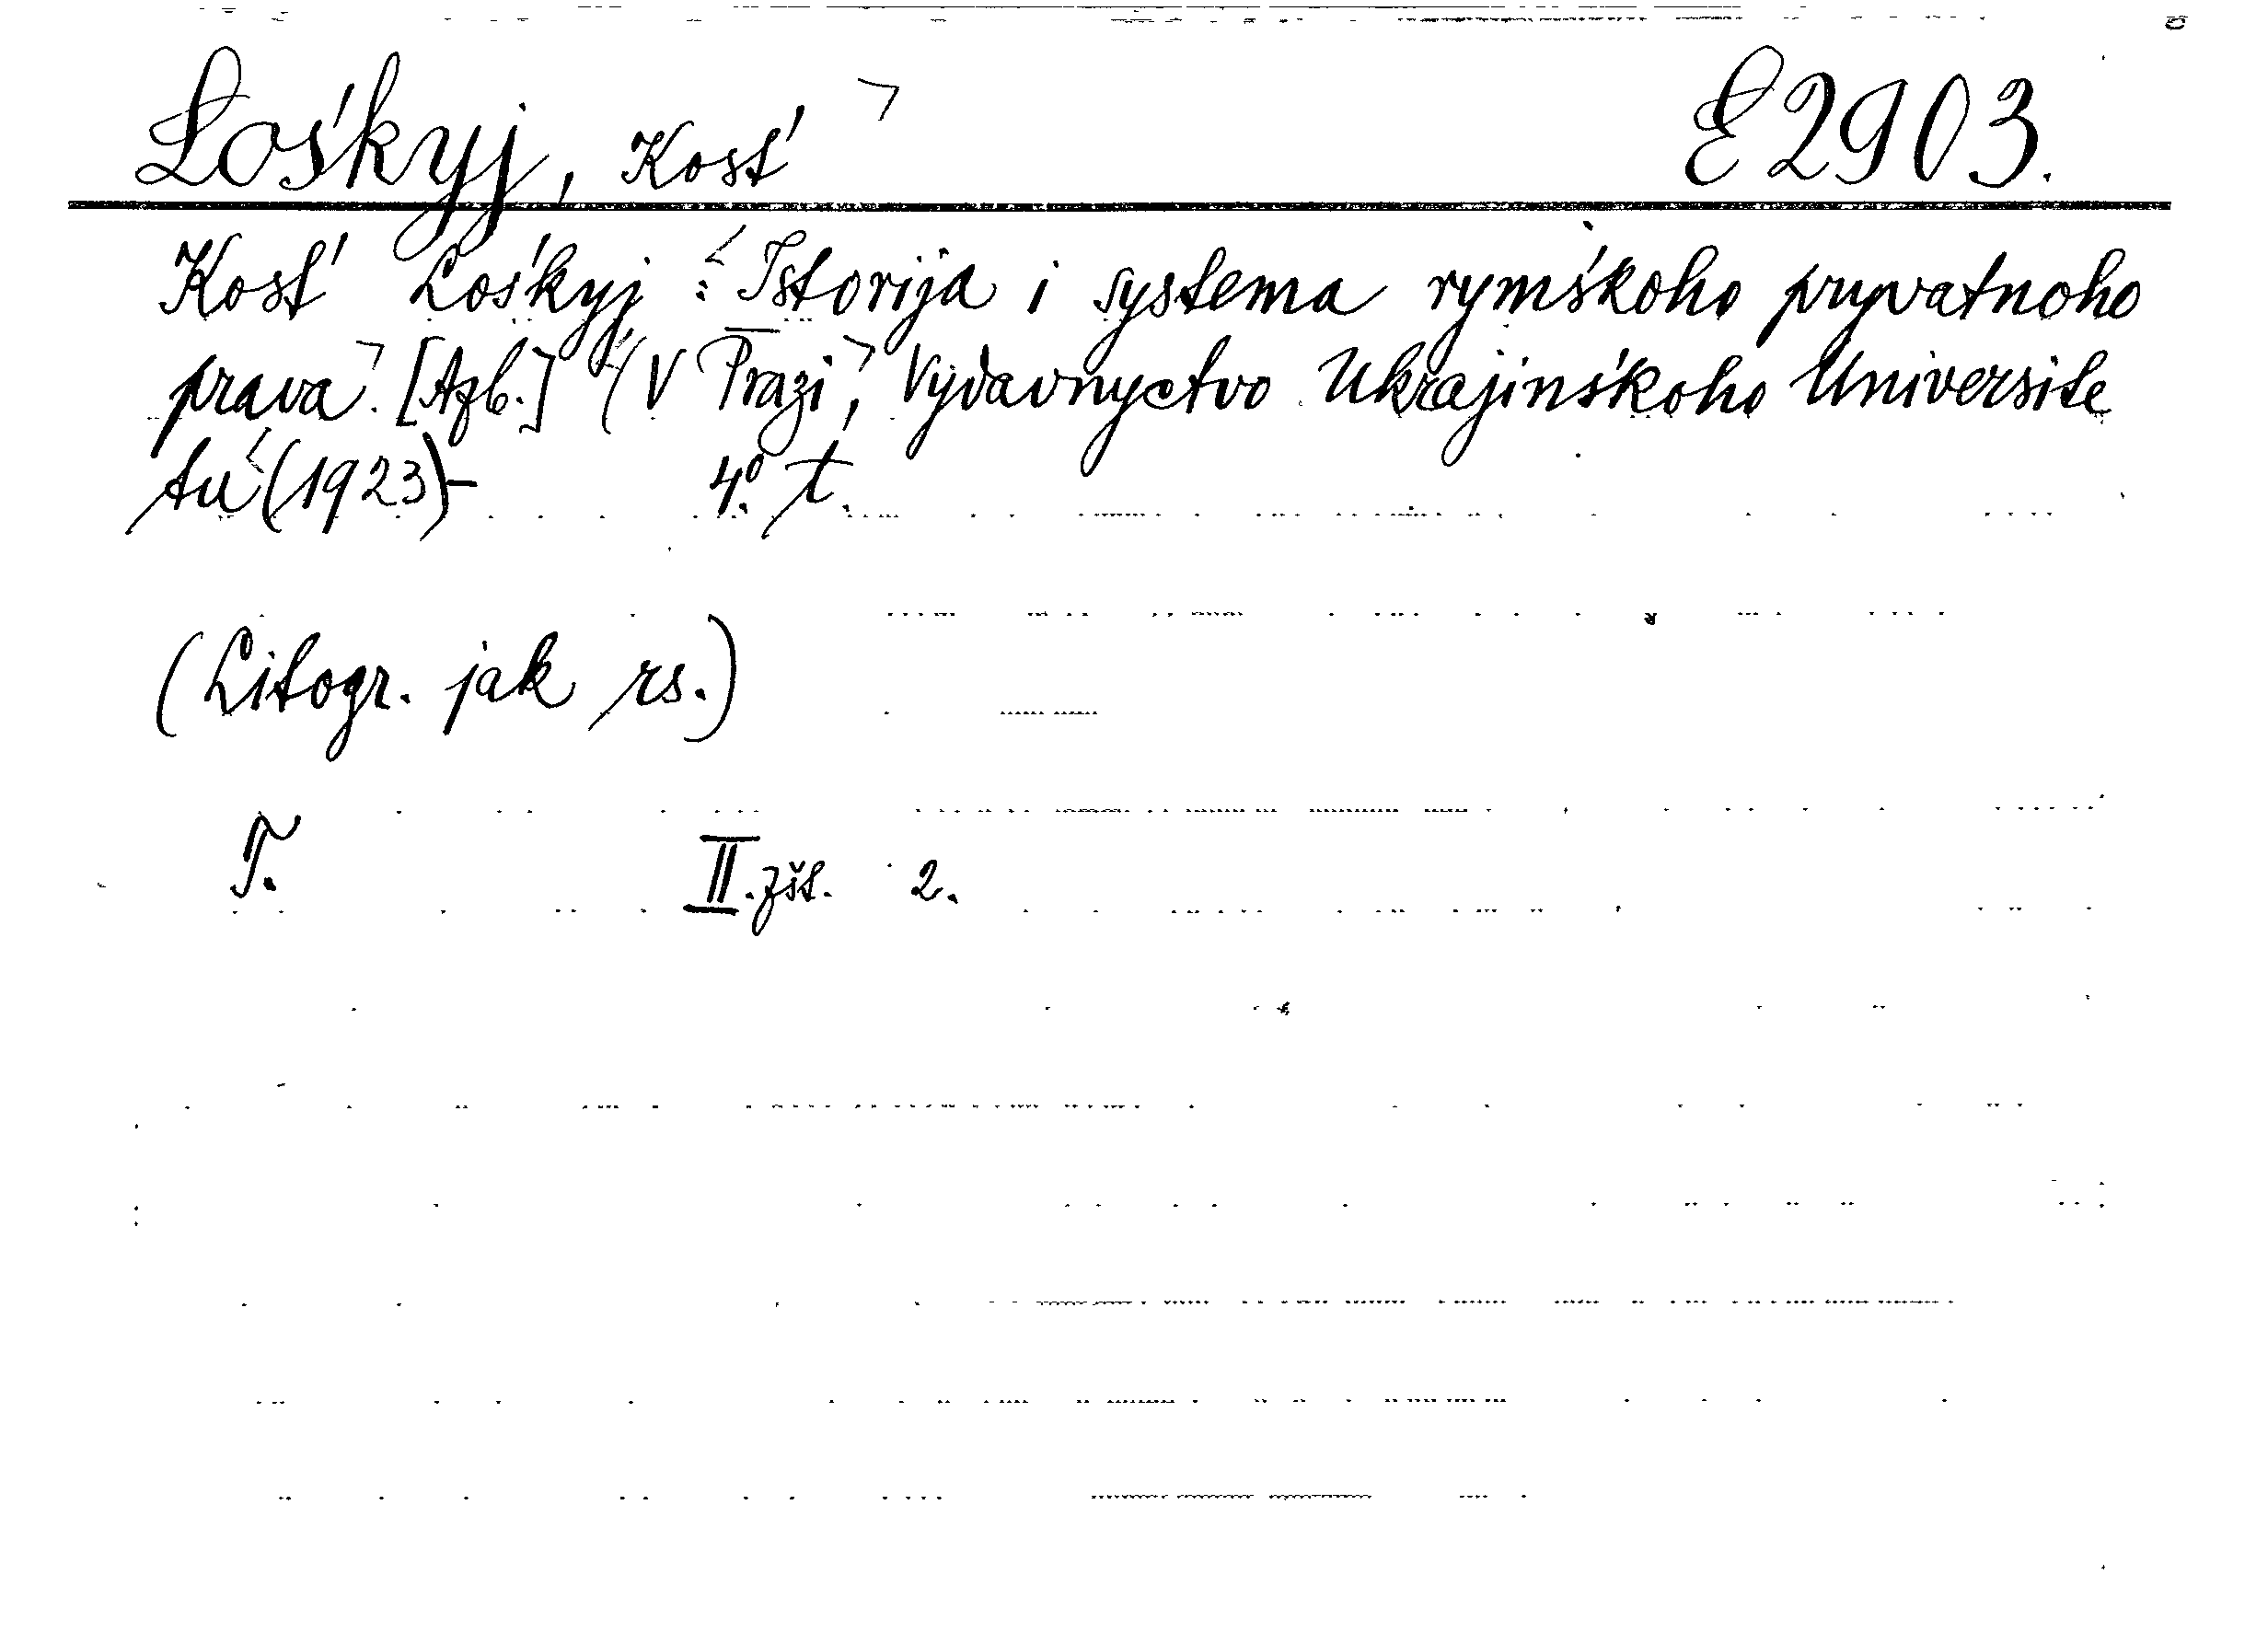 Lośkyj, Kost' E 2903.
Kost' Lośkyj: Istorija i systema rymśkoho pryvatnoho
prava. [Azb.] (V Prazi, Vydavnyctvo Ukrajinśkoho Universite
tu (1923)- 4.° t.
(Litogr. jak rs.)
T. II. zšt. 2.